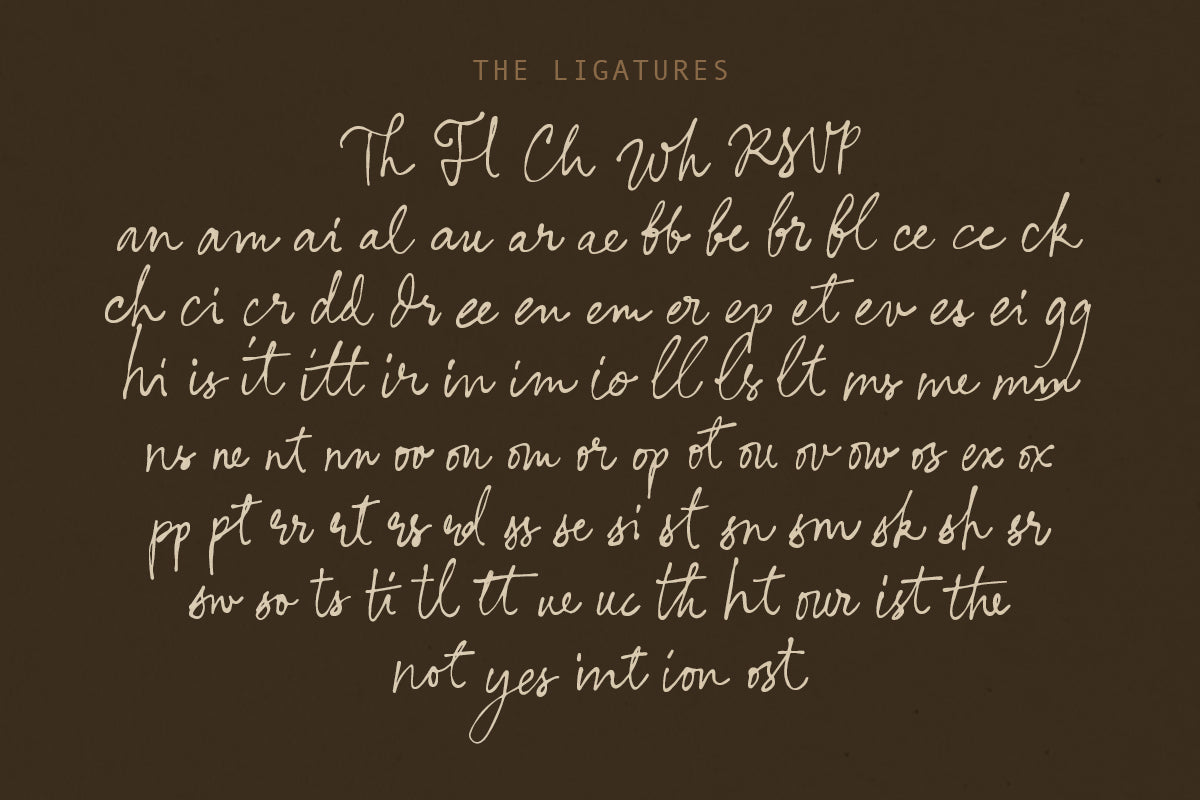 THE LIGATURES
Th Fl Ch Wh RSVP
an am ai al au ar ae bb be br bl ce cc ck
ch ci cr dd dr ee en em er ep et ev es ei gg
hi is it itt ir in im io ll ls lt ms me mm
ns ne nt nn oo on om or op ot ou ov ow os ex ox
pp pt rr rt rs rd ss se si st sn sm sk sh sr
sw so ts ti tl tt ue uc th ht our ist the
not yes int ion ost